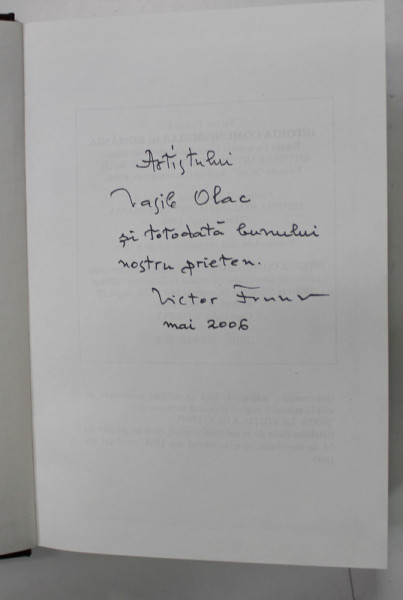 Artistului
Vasile Olac
și totodată bunului
nostru prieten.
Victor Frunză
mai 2006